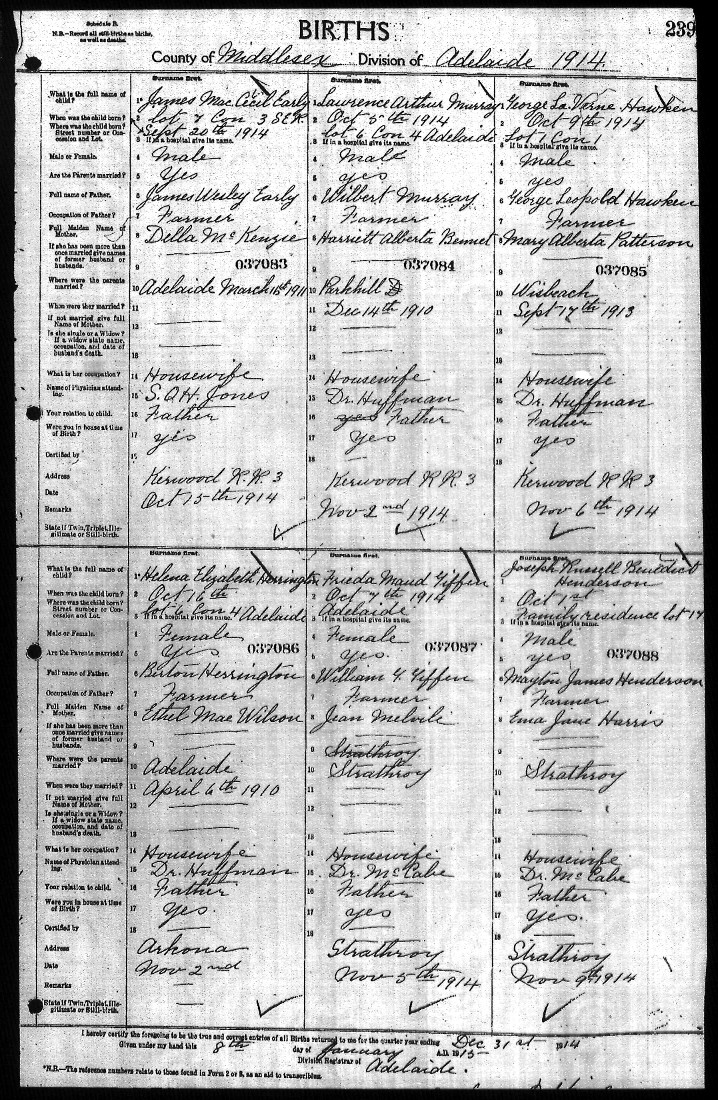 Schedule B.
N.B.—Record all still-births as births, as well as deaths.
BIRTHS
239
County of Middlesex Division of Adelaide 1914.
Surname first. Surname first. Surname first.
What is the full name of child?
1 James Mac Cecil Early
1 Lawrence Arthur Murray
George La Verne Hawken
When was the child born?
2 Lot 7 Con 3 S.E.R.
2 Oct 5th 1914
2 Oct 9th 1914
Where was the child born? Street number or Concession and Lot.
Sept 20th 1914
Lot 6 Con 4 Adelaide
Lot 1 Con 1
3 If in a hospital give its name.
3 If in a hospital give its name.
3 If in a hospital give its name.
Male or Female.
4 Male
4 Male
4 Male
Are the Parents married?
5 Yes
5 yes
5 yes
Full name of Father.
6 James Wesley Early
6 Wilbert Murray
6 George Leopold Hawken
Occupation of Father?
7 Farmer
7 Farmer
7 Farmer
Full Maiden Name of Mother.
8 Della McKenzie
8 Harriett Alberta Bennet
8 Mary Alberta Patterson
If she has been more than once married give names of former husband or husbands.
9 037083
9 037084
9 037085
Where were the parents married?
10 Adelaide March 15th 1911
10 Parkhill
10 Wisbeach
When were they married?
11
11 Dec 14th 1910
11 Sept 17th 1913
If not married give full Name of Mother.
12
12
12
Is she single or a Widow? If a widow state name, occupation, and date of husband's death.
13
13
13
What is her occupation?
14 Housewife
14 Housewife
14 Housewife
Name of Physician attending.
15 S. Q H. Jones
15 Dr. Huffman
15 Dr. Huffman
Your relation to child.
16 Father
16 yes Father
16 Father
Were you in house at time of Birth?
17 yes
17 Yes
17 yes
Certified by
18
18
Address
Kerwood R.R. 3
Kerwood R R. 3
Kerwood R R 3
Date
Oct 15th 1914
Nov 2nd 1914
Nov 6th 1914
Remarks
State if Twin, Triplet, Illegitimate or Still-birth.
Surname first. Surname first. Surname first.
What is the full name of child?
1 Helena Elizabeth Herrington
1 Frieda Maud Giffen
1 Joseph Russell Benedict Henderson
When was the child born?
2 Oct 16th
2 Oct 7th 1914
2 Oct 1st
Where was the child born? Street number or Concession and Lot.
Lot 6 Con 4 Adelaide
Adelaide
Family residence lot 14
3 If in a hospital give its name.
3 If in a hospital give its name.
3 If in a hospital give its name.
Male or Female.
4 Female
4 Female
4 Male
Are the Parents married?
5 yes 037086
5 yes. 037087
5 yes 037088
Full name of Father.
6 Burton Herrington
6 William Y. Giffen
6 Mayton James Henderson
Occupation of Father?
7 Farmer
7 Farmer
7 Farmer
Full Maiden Name of Mother.
8 Ethel Mae Wilson
8 Jean Melvile
8 Ema Jane Harris
If she has been more than once married give names of former husband or husbands.
9
9 Strathroy
9
Where were the parents married?
10 Adelaide
10 Strathroy
10 Strathroy
When were they married?
11 April 6th 1910
11
11
If not married give full Name of Mother.
12
12
12
Is she single or a Widow? If a widow state name, occupation, and date of husband's death.
13
13
13
What is her occupation?
14 Housewife
14 Housewife
14 Housewife
Name of Physician attending.
15 Dr. Huffman
15 Dr. McCabe
15 Dr. McCabe
Your relation to child.
16 Father
16 Father
16 Father
Were you in house at time of Birth?
17 Yes.
17 yes
17 Yes.
Certified by
18
18
18
Address
Arkona
Strathroy
Strathroy
Date
Nov 2nd
Nov 5th 1914
Nov 9th 1914
Remarks
State if Twin, Triplet, Illegitimate or Still-birth.
I hereby certify the foregoing to be the true and correct entries of all Births returned to me for the quarter year ending Dec 31st 1914
Given under my hand this 8th day of January A.D. 1915
Division Registrar of Adelaide.
*N.B.—The reference numbers relate to those found in Form 2 or B, as an aid to transcribing.